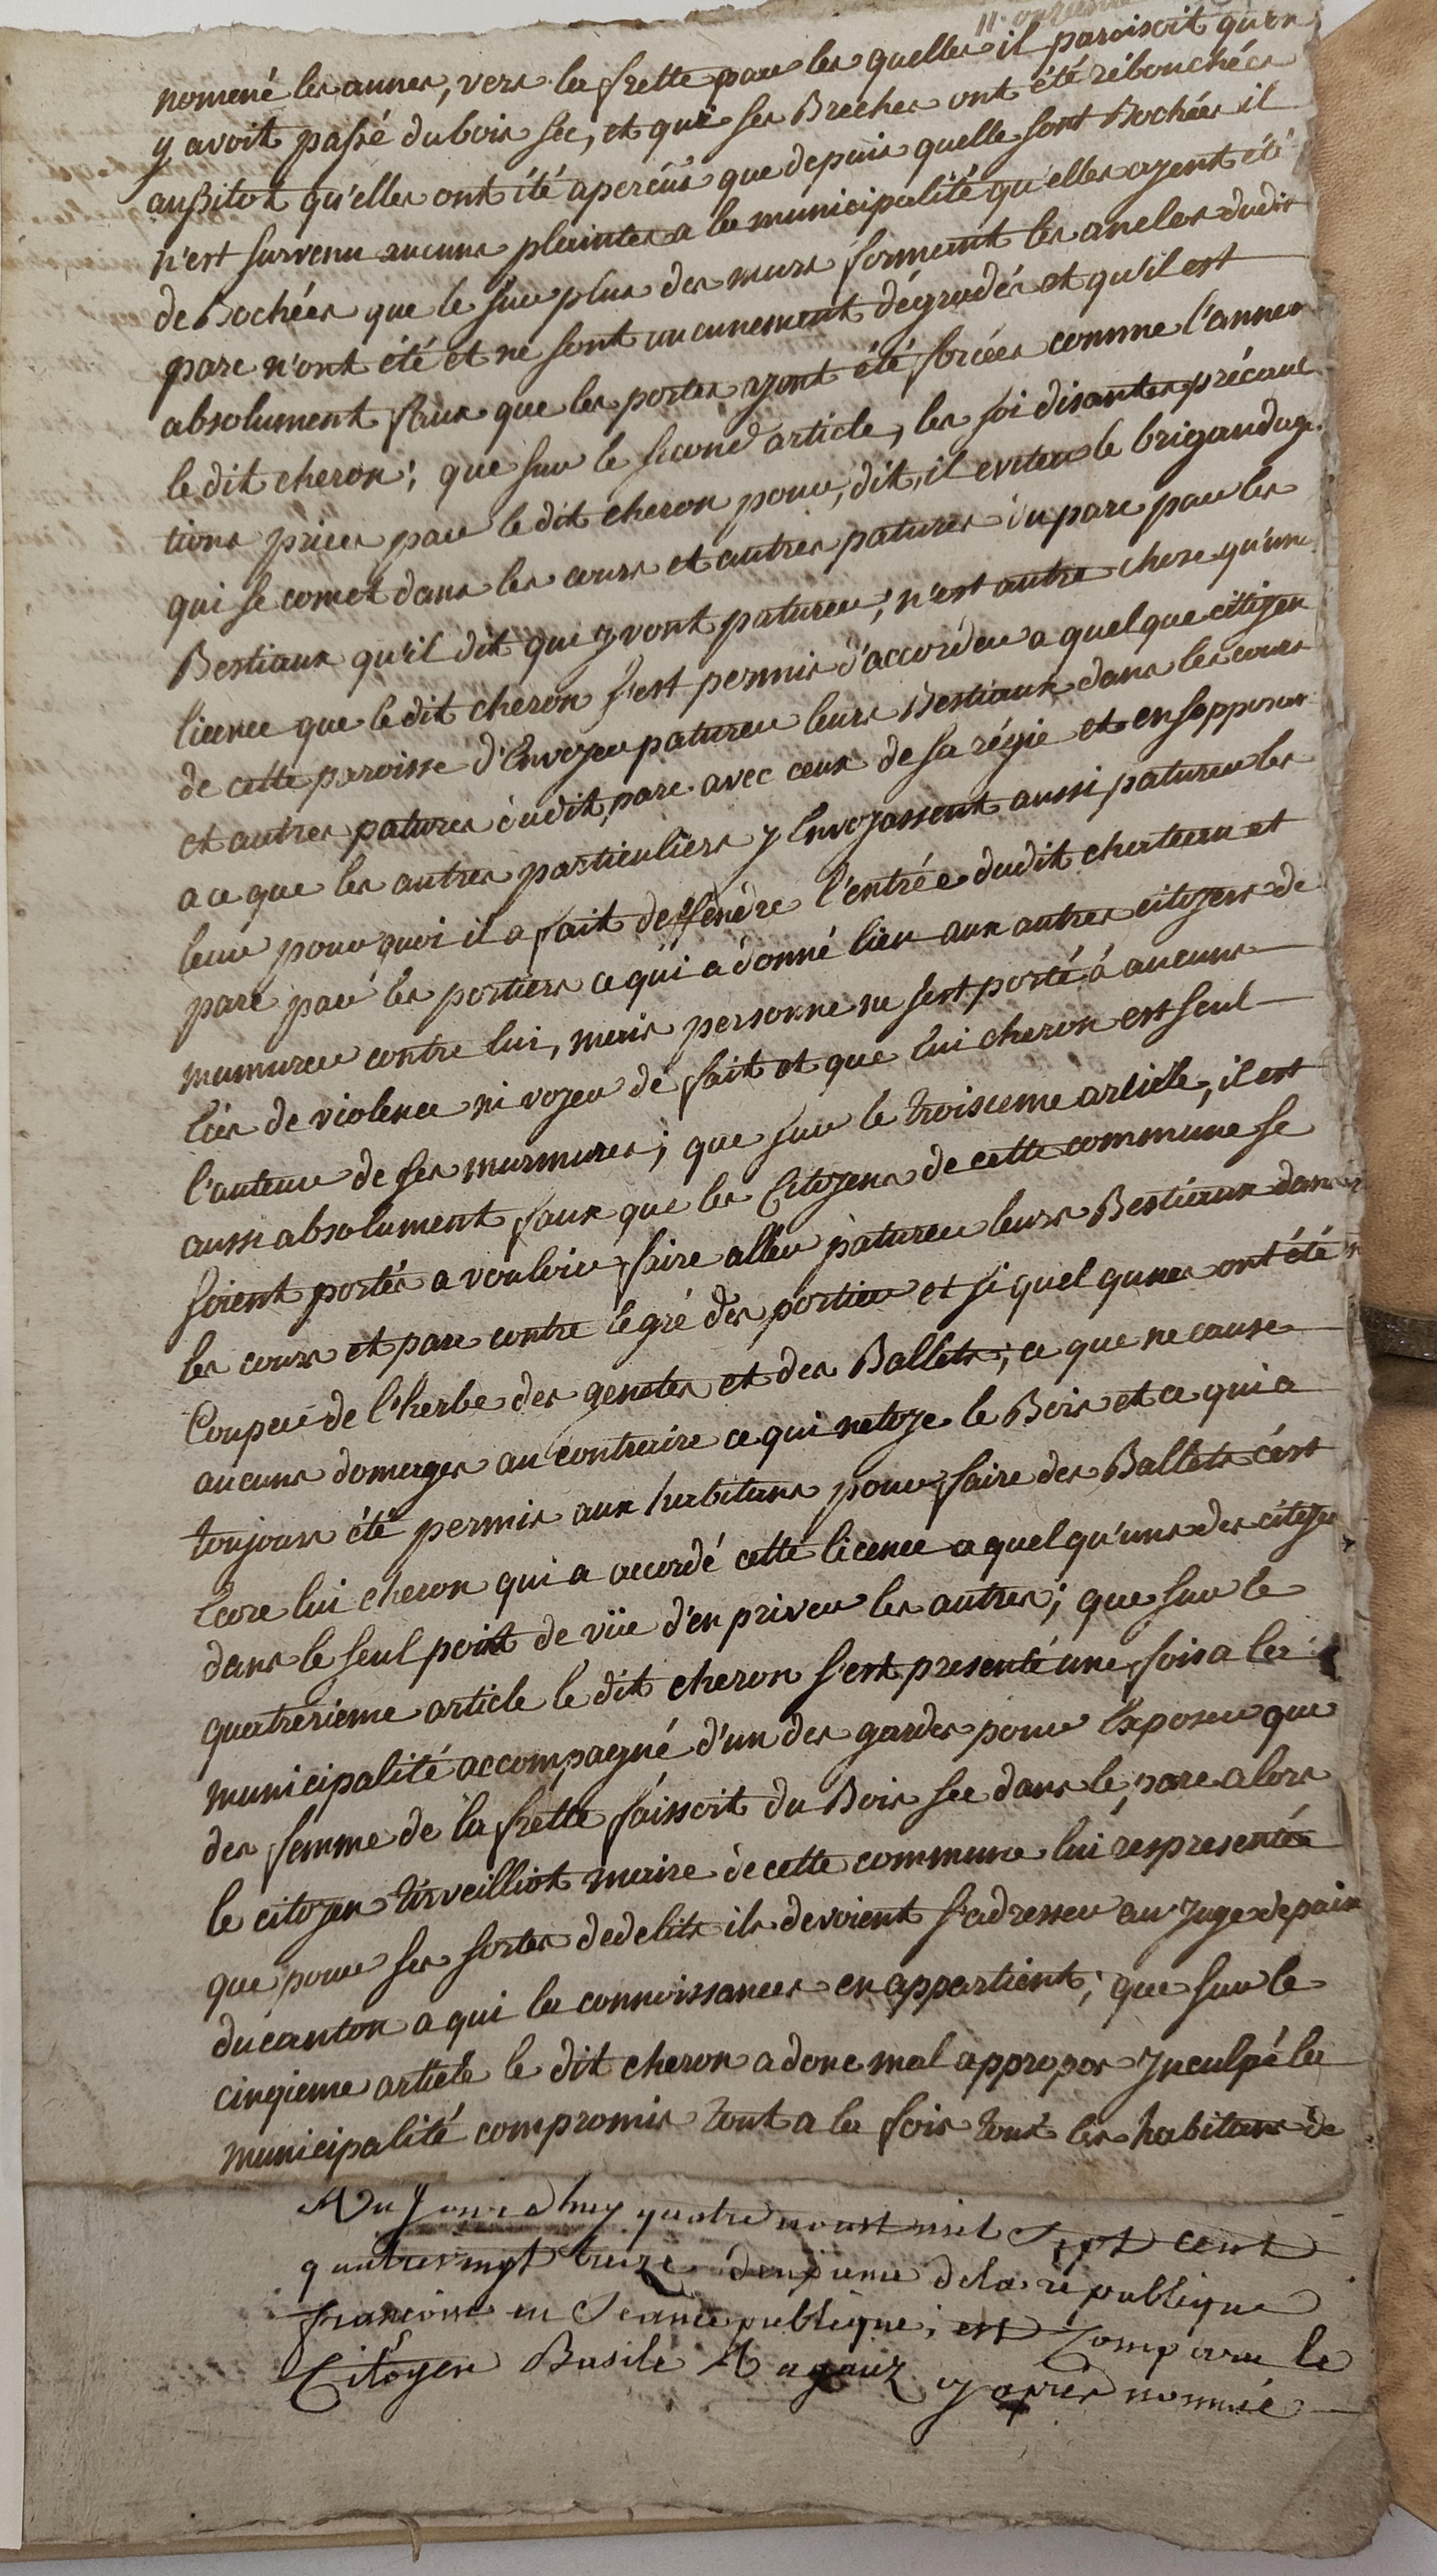 nomené les aunes, vers la frette par les quelles il paroisoit qu'en
y avoit passé du bois sec, et que ses Breches ont été rébouchées
aussitot qu'elles ont été aperçüs que depuis quelle sont Bochées il
n'est survenu aucuns plaintes a la municipalité qu'elles ayent été
de Bochées que le sur plus des murs formant les ancles dudit
parc n'ont été et ne sont aucunement dégradés et qu'il est
absolument faux que les portes ayont été forcées comme l'annex
le dit cheron; que sur le second article, les soi disantes précau
tions prices par le dit cheron pour, dit, il eviter le brigandage
qui se comet dans les cours et autres patures du parc par les
Bestiaux qu'il dit que y vont paturer; n'est autre chose qu'une
licence que le dit cheron s'est permis d'accorder a quelque citoyen
de cette paroisse d'Envoyer paturer leurs Bestiaux dans les cours
et autres patures dudit parc avec ceux de sa régie et en sopposer
a ce que les autres particuliers y Envoyassent aussi paturer les
leur pour quoi il a fait deffendre l'entrée dudit chateau et
parc par les portiers ce qui a donné lieu aux autres citoyens de
murmurer contre lui, mais personne ne sest porté à aucuns
Ecès de violence ni voyer de fait et que lui cheron est seul
l'auteur de ses murmures; que sur le troisieme article, il est
aussi absolument faux que les Citoyens de cette commune se
soient portés a vouloir faire aller paturer leurs Bestiaux dans
les cours et parc contre legré des portier et si quel qunes ont été
Couper de l'herbe des genetes et des Ballets; ce que ne cause
aucuns domages au contraire ce qui netoye le Bois et ce qui a
toujours été permis aux habitans pour faire des Ballets c'est
Ecore lui cheron qui a accordé cette licence a quelqu'uns des citoye
dans le seul point de vüe d'en priver les autres; que sur le
quatrerieme article le dit cheron s'est presenté une fois a la
municipalité accompagné d'un des gardes pour Exposer que
des femme de la frette faissoit du Bois sec dans le parc alors
le citoyen Tirveilliot maire de cette commune lui respresentée
que pour ses sortes dedelits ils devoient s'adresser au Juge depaix
du canton a qui la connoissances en appartient; que sur le
cinqieme article le dit cheron a donc mal appropos Jnculpé la
municipalité compromis tout a la fois tous les habitans de
Au Jourdhuy quatre aoust mil Sept cent
quatrevingt treize deuxieme dela republique
francoise en Seance publique; est Comparu le
Citoyen Basile Ragaux cy après nommé